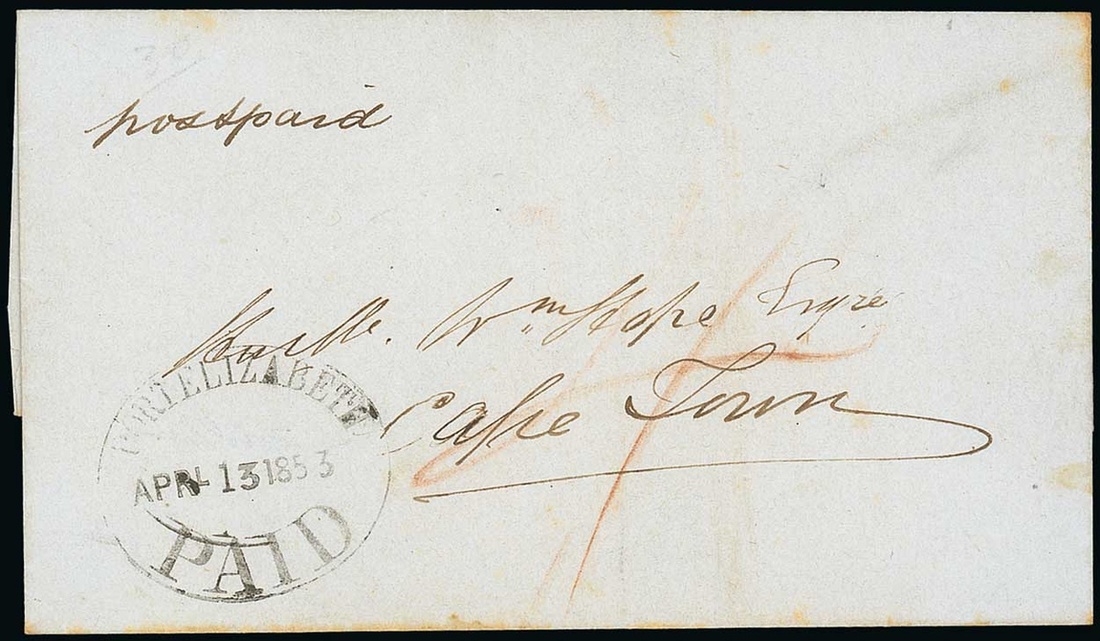 30
postpaid
Wm Hope Esqre
Cape Town
PORT ELIZABETH
APRL 13 1853
PAID